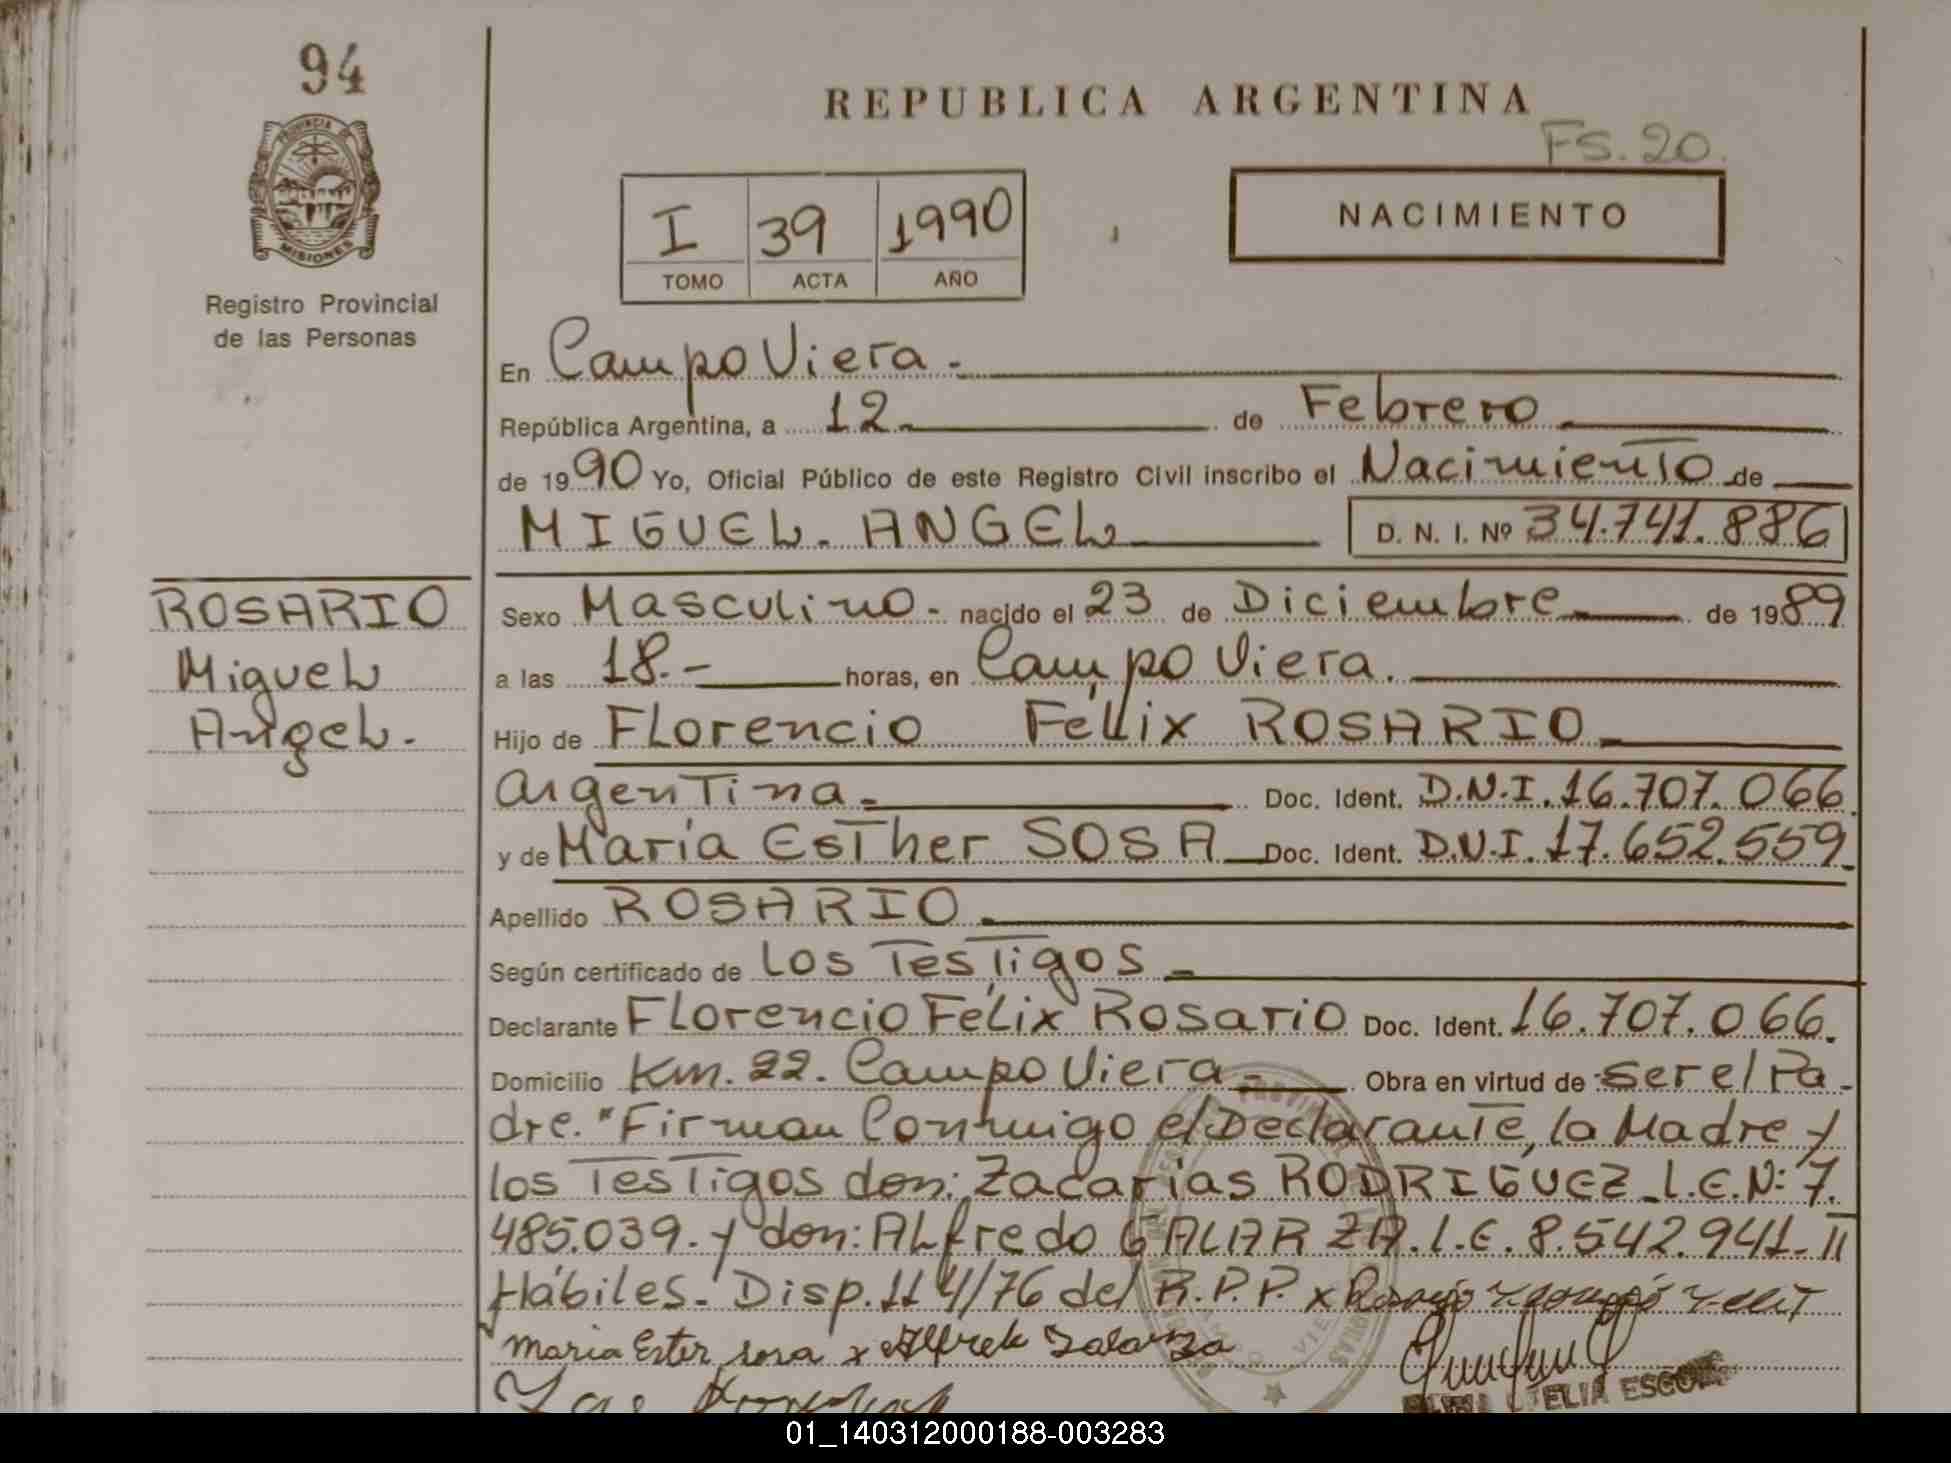 94
REPUBLICA ARGENTINA
FS. 20.
PROVINCIA DE
MISIONES
Registro Provincial
de las Personas
I 39 1990
TOMO ACTA AÑO
NACIMIENTO
En Campo Viera.
República Argentina, a 12 de Febrero
de 1990 Yo, Oficial Público de este Registro Civil inscribo el Nacimiento de
MIGUEL. ANGEL D. N. I. Nº 34.741.886
ROSARIO
Miguel
Angel.
Sexo Masculino. nacido el 23 de Diciembre de 1989
a las 18.- horas, en Campo Viera.
Hijo de Florencio Félix ROSARIO
Argentina. Doc. Ident. D.N.I. 16.707.066
y de María Esther SOSA Doc. Ident. D.N.I. 17.652.559
Apellido ROSARIO.
Según certificado de los Testigos
Declarante Florencio Félix Rosario Doc. Ident. 16.707.066.
Domicilio Km. 22. Campo Viera- Obra en virtud de ser el Pa-
dre. "Firman Conmigo el Declarante, la Madre y
los Testigos don: Zacarías RODRIGUEZ_L.E.N: 7.
485.039. y don: Alfredo GALARZA. L.E. 8.542.941.-
Hábiles. Disp. 114/76 del R.P.P. x
Maria Ester sosa x Alfredo Galarza
01_140312000188-003283